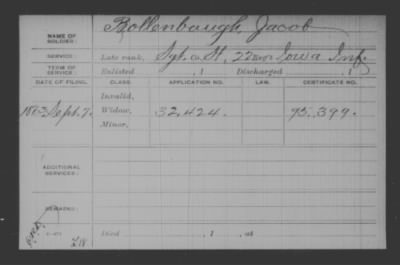 NAME OF SOLDIER: Bollenbaugh Jacob
SERVICE: Late rank, Sgt. Co. H, 22 Iowa Inf.
TERM OF SERVICE: Enlisted , 1 Discharged , 1
DATE OF FILING. CLASS. APPLICATION NO. LAW. CERTIFICATE NO.
Invalid,
1863 Sept. 7. Widow, 32,424. 95,399.
Minor,
ADDITIONAL SERVICES:
REMARKS:
Died , 1 , at